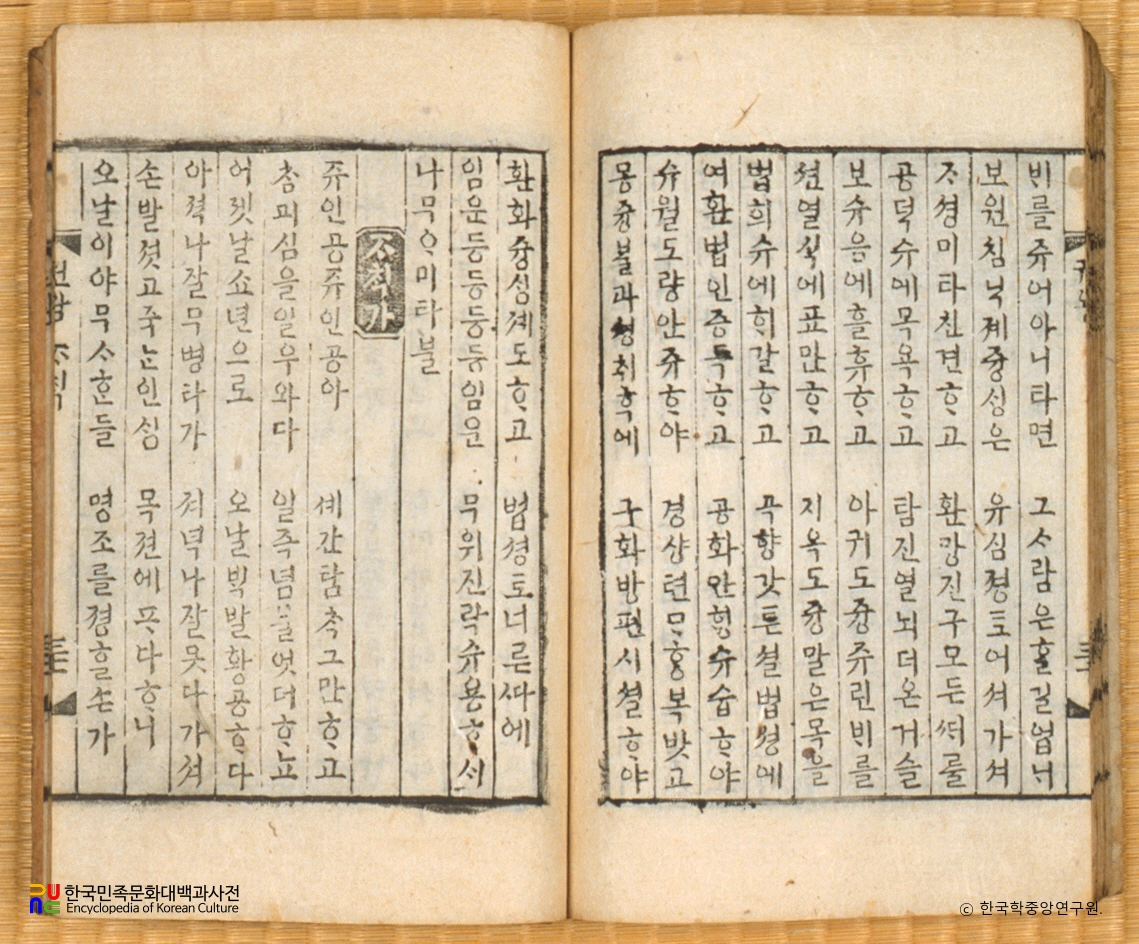 ᄇᆡ를쥬어아니타면 그ᄉᆞ람은ᄒᆞᆯ길업ᄂᆡ
보원침닉졔즁ᄉᆡᆼ은 유심졍토어셔가셔
ᄌᆞ셩미타친견ᄒᆞ고 환망진구모든ᄯᆡ를
공덕슈에목욕ᄒᆞ고 탐진열뇌더온거슬
보슈음에흘휴ᄒᆞ고 아귀도즁쥬린ᄇᆡ를
션열식에표만ᄒᆞ고 지옥도즁말은목을
법희슈에ᄒᆡ갈ᄒᆞ고 곡향갓튼셜법셩에
여환법인증득ᄒᆞ고 공화만ᄒᆡᆼ슈습ᄒᆞ야
슈월도량안쥬ᄒᆞ야 경상텬ᄆᆞᄒᆞᆼ복밧고
몽즁불과셩취ᄒᆞᆨ에 구화방편시셜ᄒᆞ야
환화즁ᄉᆡᆼ졔도ᄒᆞ고 법셩토너른ᄯᅡ에
임운등등등등임운 무위진락슈용ᄒᆞᄉᆡ
나무ᄋᆞ미타불
ᄌᆞᄎᆡᆨ가
쥬인공쥬인공아 셰간탐착그만ᄒᆞ고
참괴심을일우와다 일죽념불엇더ᄒᆞ뇨
어젯날쇼년으로 오ᄂᆞᆯᄇᆡᆨ발황공ᄒᆞ다
아젹나잘무병타가 져녁나잘못다가셔
손발졋고죽ᄂᆞᆫ인ᄉᆡᆼ 목젼에ᄑᆞ다ᄒᆞ니
오날이야무ᄉᆞᄒᆞᆫ들 명조를졍ᄒᆞᆯ손가
한국민족문화대백과사전
Encyclopedia of Korean Culture
ⓒ 한국학중앙연구원.